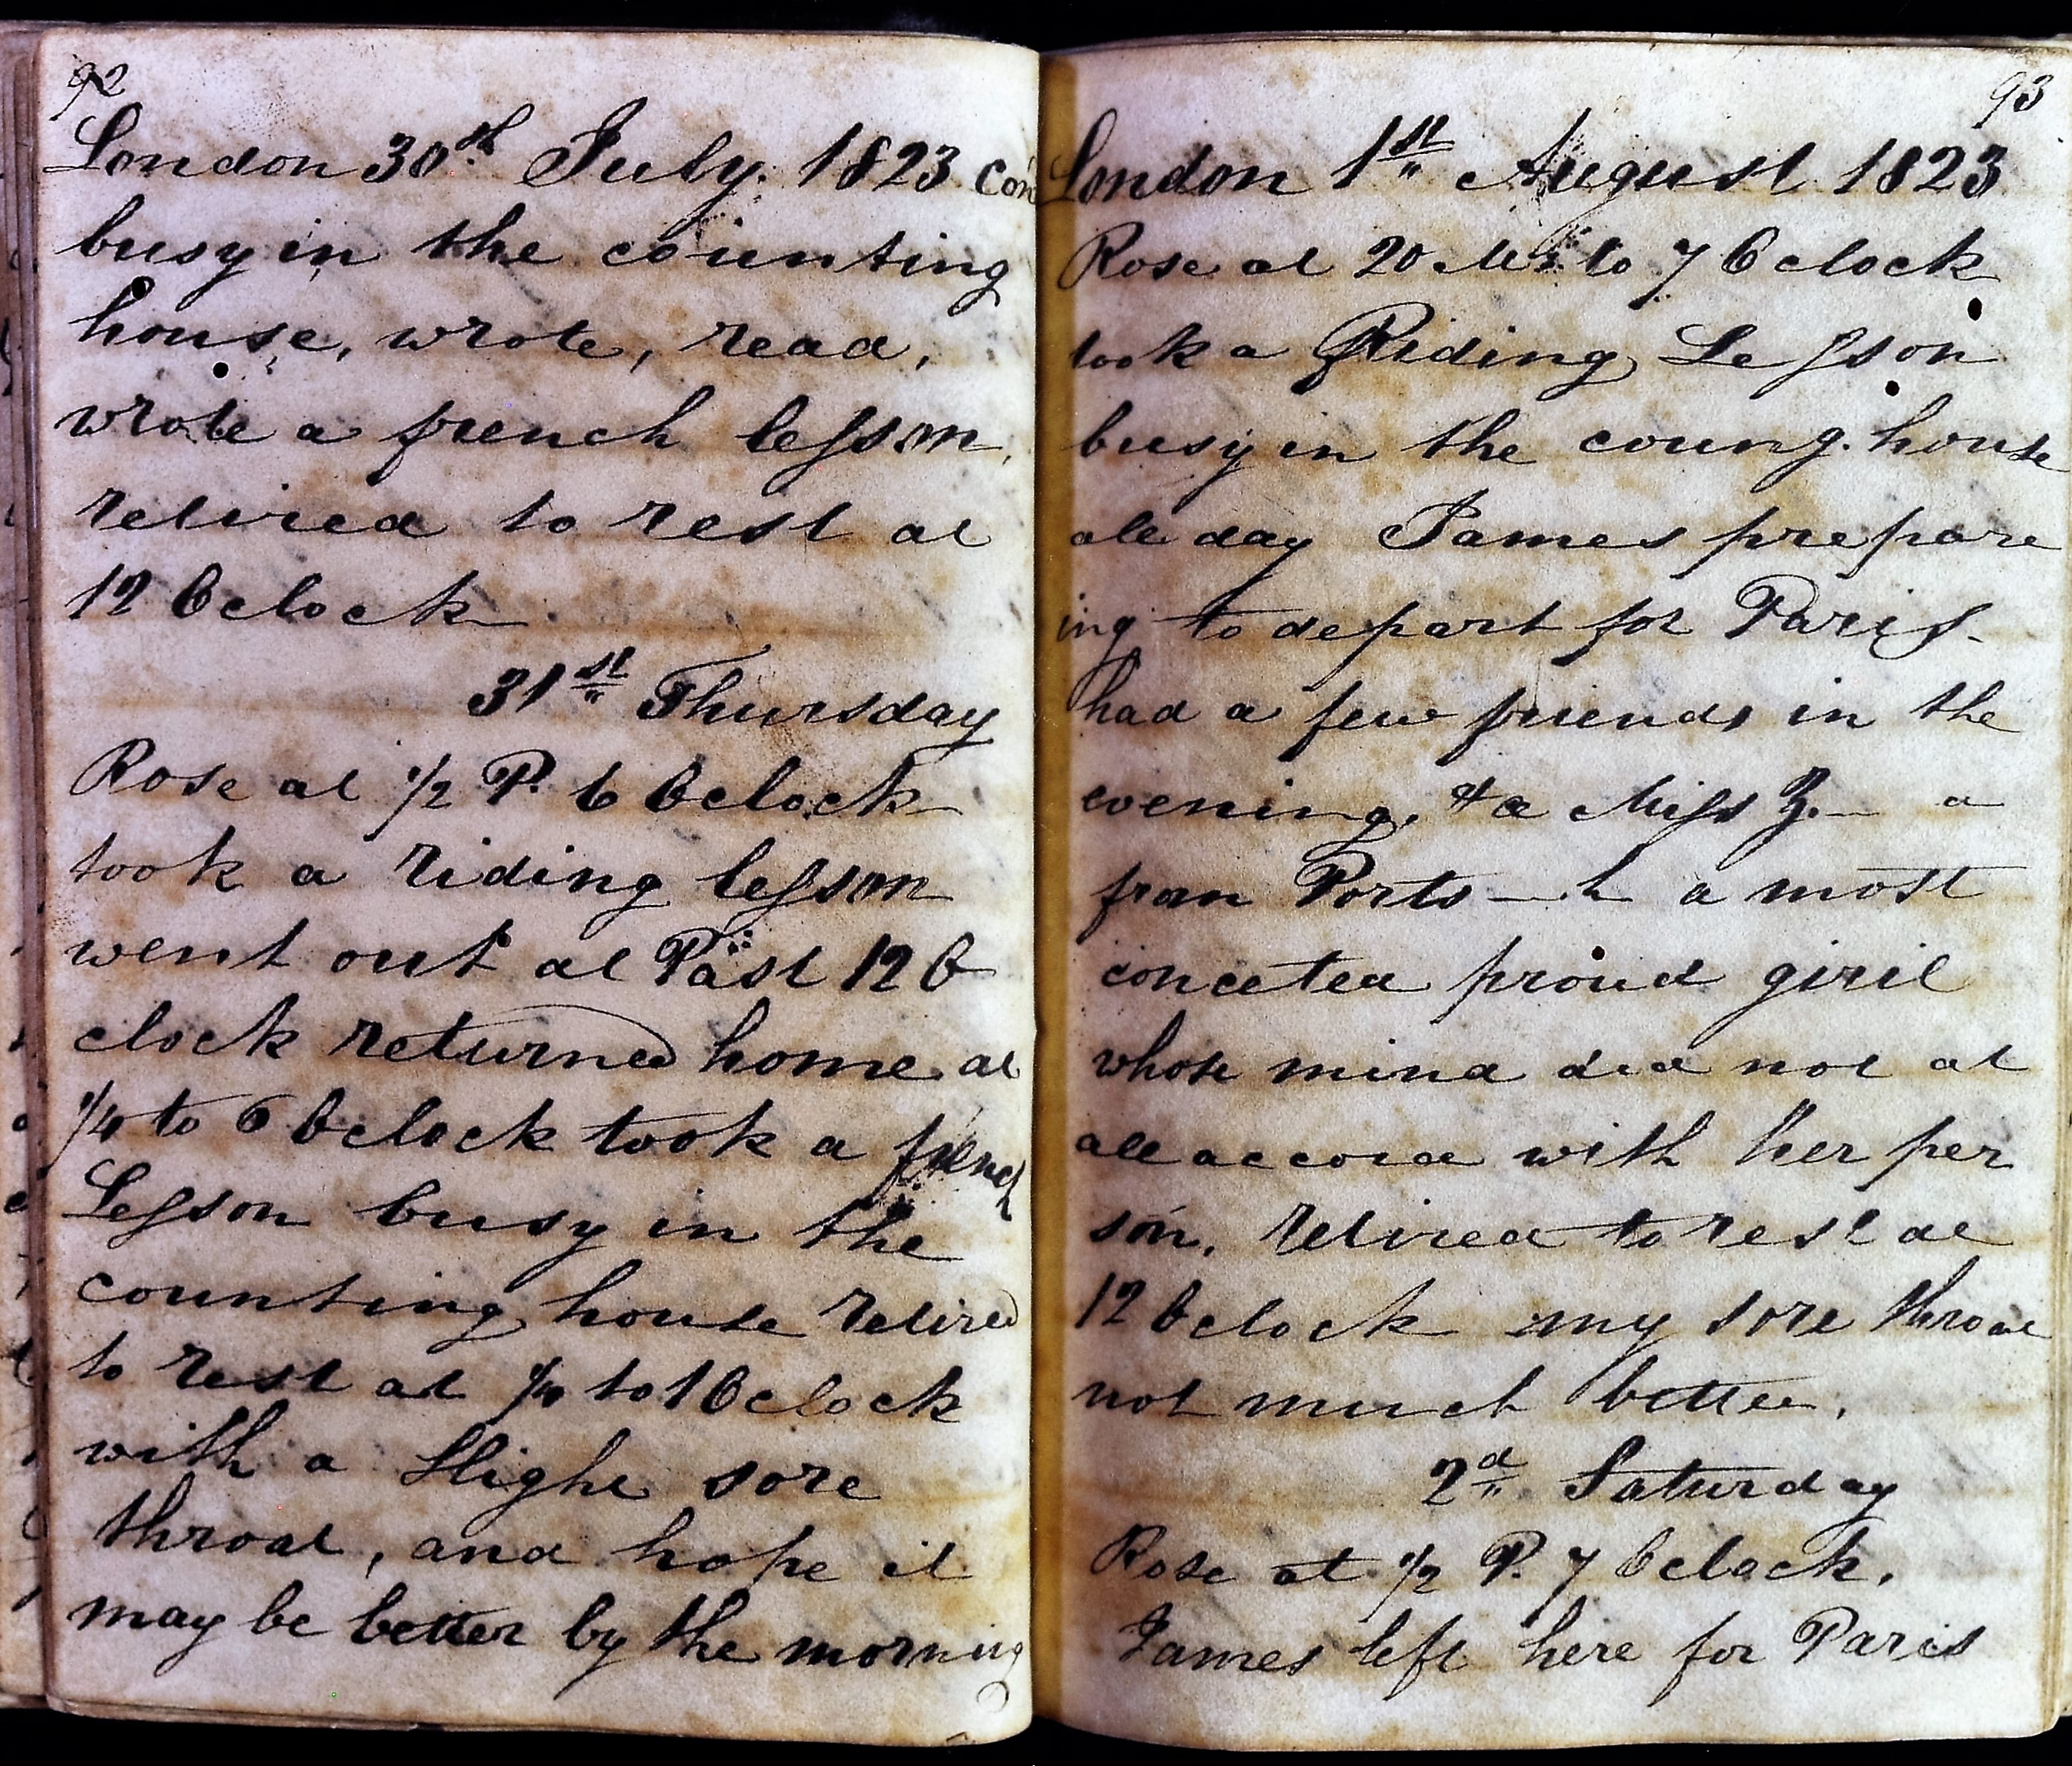 92
London 30th July. 1823 Con
busy in the counting
house, wrote, read,
wrote a french lesson,
retired to rest at
12 Oclock
31st Thursday
Rose at 1/2 P. 6 Oclock
took a riding lesson
went out at Past 12 O
clock returned home at
1/4 to 6 Oclock took a french
Lesson busy in the
counting house retired
to rest at 1/4 to 1 Oclock
with a slight sore
throat, and hope it
may be better by the morning
93
London 1st August 1823
Rose at 20 Ms to 7 Oclock
took a Riding Lesson
busy in the coung. house
all day James prepare
ing to depart for Paris.
had a few friends in the
evening, & a Miss Z.— a
from Ports—h a most
conceted proud giril
whose mind did not at
all accord with her per
son, retired to rest at
12 Oclock my sore throat
not much better,
2d Saturday
Rose at 1/2 P. 7 Oclock,
James left here for Paris